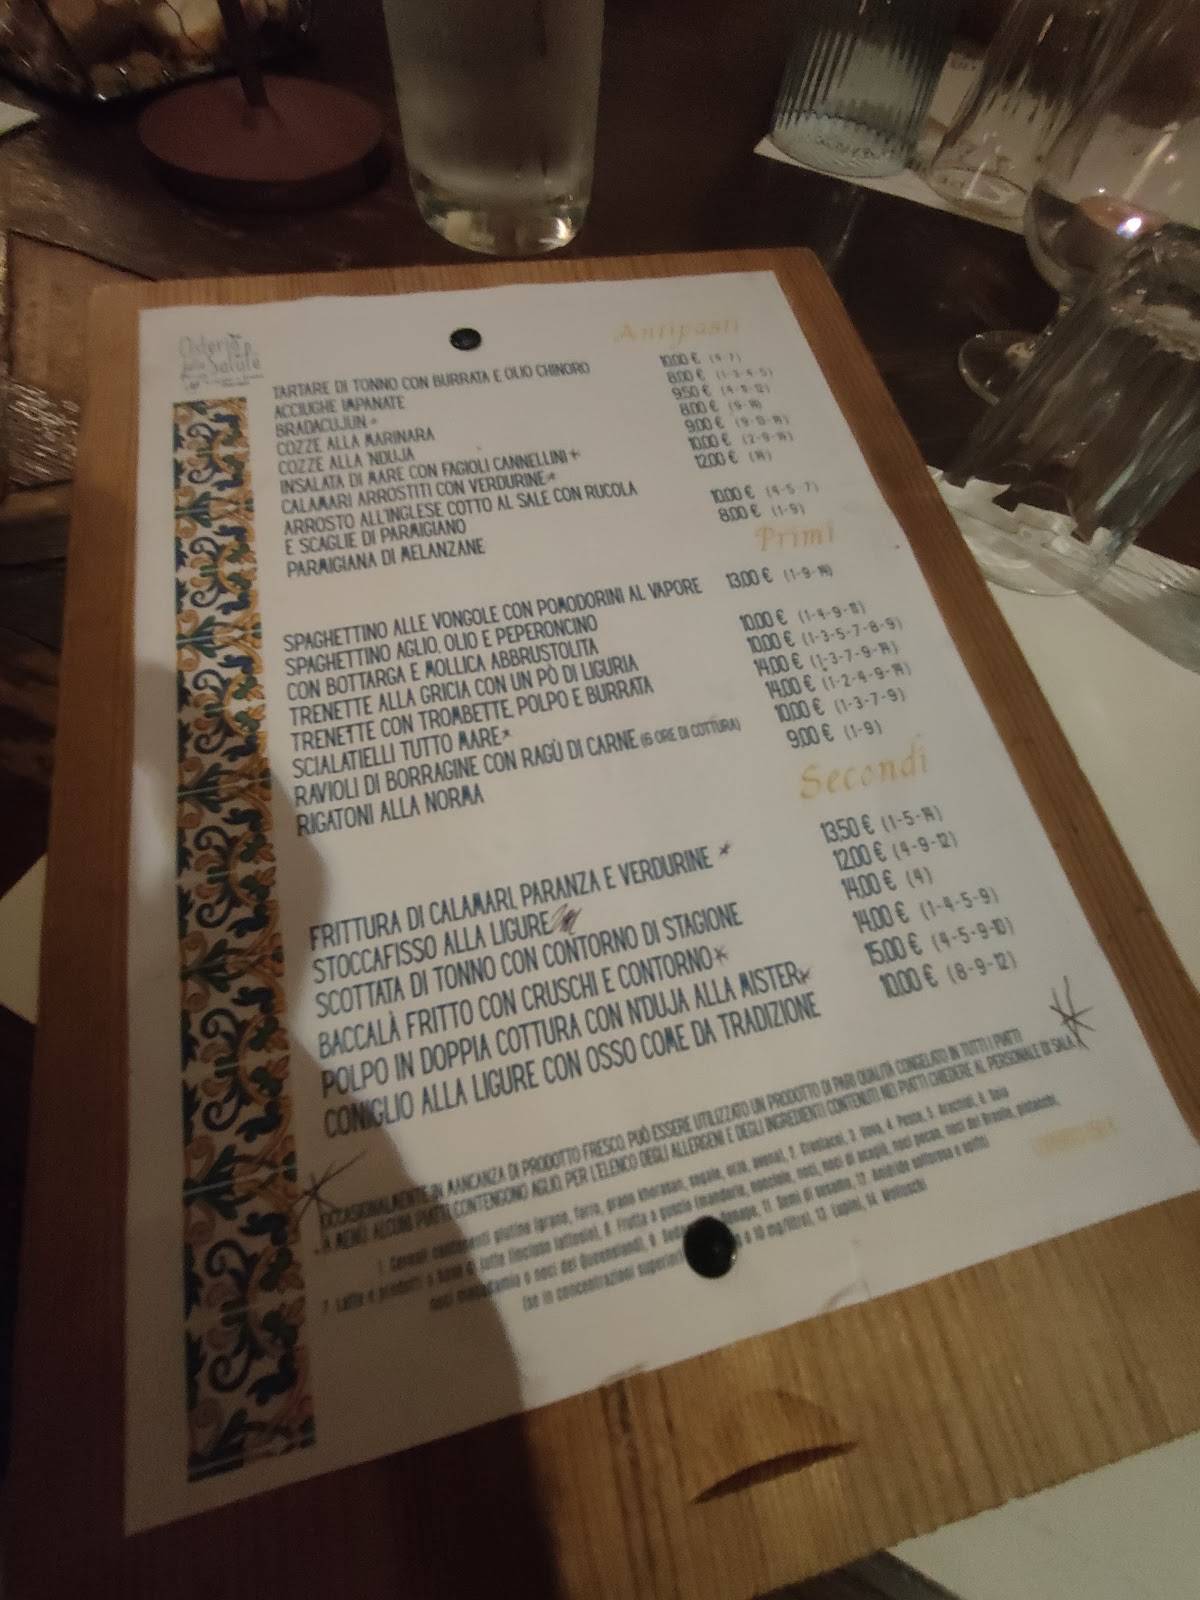 Osteria
della Salute
Antipasti
TARTARE DI TONNO CON BURRATA E OLIO CHINORO 10,00 € (4-7)
ACCIUGHE IMPANATE 8,00 € (1-3-4-5)
BRADACUJUN * 9,50 € (4-9-12)
COZZE ALLA MARINARA 8,00 € (9-14)
COZZE ALLA 'NDUJA 9,00 € (9-13-14)
INSALATA DI MARE CON FAGIOLI CANNELLINI * 10,00 € (2-9-14)
CALAMARI ARROSTITI CON VERDURINE * 12,00 € (14)
ARROSTO ALL'INGLESE COTTO AL SALE CON RUCOLA
E SCAGLIE DI PARMIGIANO 10,00 € (4-5-7)
PARMIGIANA DI MELANZANE 8,00 € (1-9)
Primi
SPAGHETTINO ALLE VONGOLE CON POMODORINI AL VAPORE 13,00 € (1-9-14)
SPAGHETTINO AGLIO, OLIO E PEPERONCINO
CON BOTTARGA E MOLLICA ABBRUSTOLITA 10,00 € (1-4-9-11)
TRENETTE ALLA GRICIA CON UN PÒ DI LIGURIA 10,00 € (1-3-5-7-8-9)
TRENETTE CON TROMBETTE, POLPO E BURRATA 14,00 € (1-3-7-9-14)
SCIALATIELLI TUTTO MARE * 14,00 € (1-2-4-9-14)
RAVIOLI DI BORRAGINE CON RAGÙ DI CARNE (6 ORE DI COTTURA) 10,00 € (1-3-7-9)
RIGATONI ALLA NORMA 9,00 € (1-9)
Secondi
FRITTURA DI CALAMARI, PARANZA E VERDURINE * 13,50 € (1-5-14)
STOCCAFISSO ALLA LIGURE 12,00 € (4-9-12)
SCOTTATA DI TONNO CON CONTORNO DI STAGIONE 14,00 € (4)
BACCALÀ FRITTO CON CRUSCHI E CONTORNO * 14,00 € (1-4-5-9)
POLPO IN DOPPIA COTTURA CON N'DUJA ALLA MISTER * 15,00 € (4-5-9-10)
CONIGLIO ALLA LIGURE CON OSSO COME DA TRADIZIONE 10,00 € (8-9-12)
* OCCASIONALMENTE, IN MANCANZA DI PRODOTTO FRESCO, PUÒ ESSERE UTILIZZATO UN PRODOTTO DI PARI QUALITÀ CONGELATO IN TUTTI I PIATTI *
A MENÙ. ALCUNI PIATTI CONTENGONO AGLIO. PER L'ELENCO DEGLI ALLERGENI E DEGLI INGREDIENTI CONTENUTI NEI PIATTI CHIEDERE AL PERSONALE DI SALA.
1. Cereali contenenti glutine (grano, farro, grano khorasan, segale, orzo, avena), 2. Crostacei, 3. Uova, 4. Pesce, 5. Arachidi, 6. Soia
7. Latte e prodotti a base di latte (incluso lattosio), 8. Frutta a guscio (mandorle, nocciole, noci, noci di acagiù, noci pecan, noci del Brasile, pistacchi,
noci macadamia o noci del Queensland), 9. Sedano, Senape, 11. Semi di sesamo, 12. Anidride solforosa e solfiti
(se in concentrazioni superiori a 10 mg/litro), 13. Lupini, 14. Molluschi